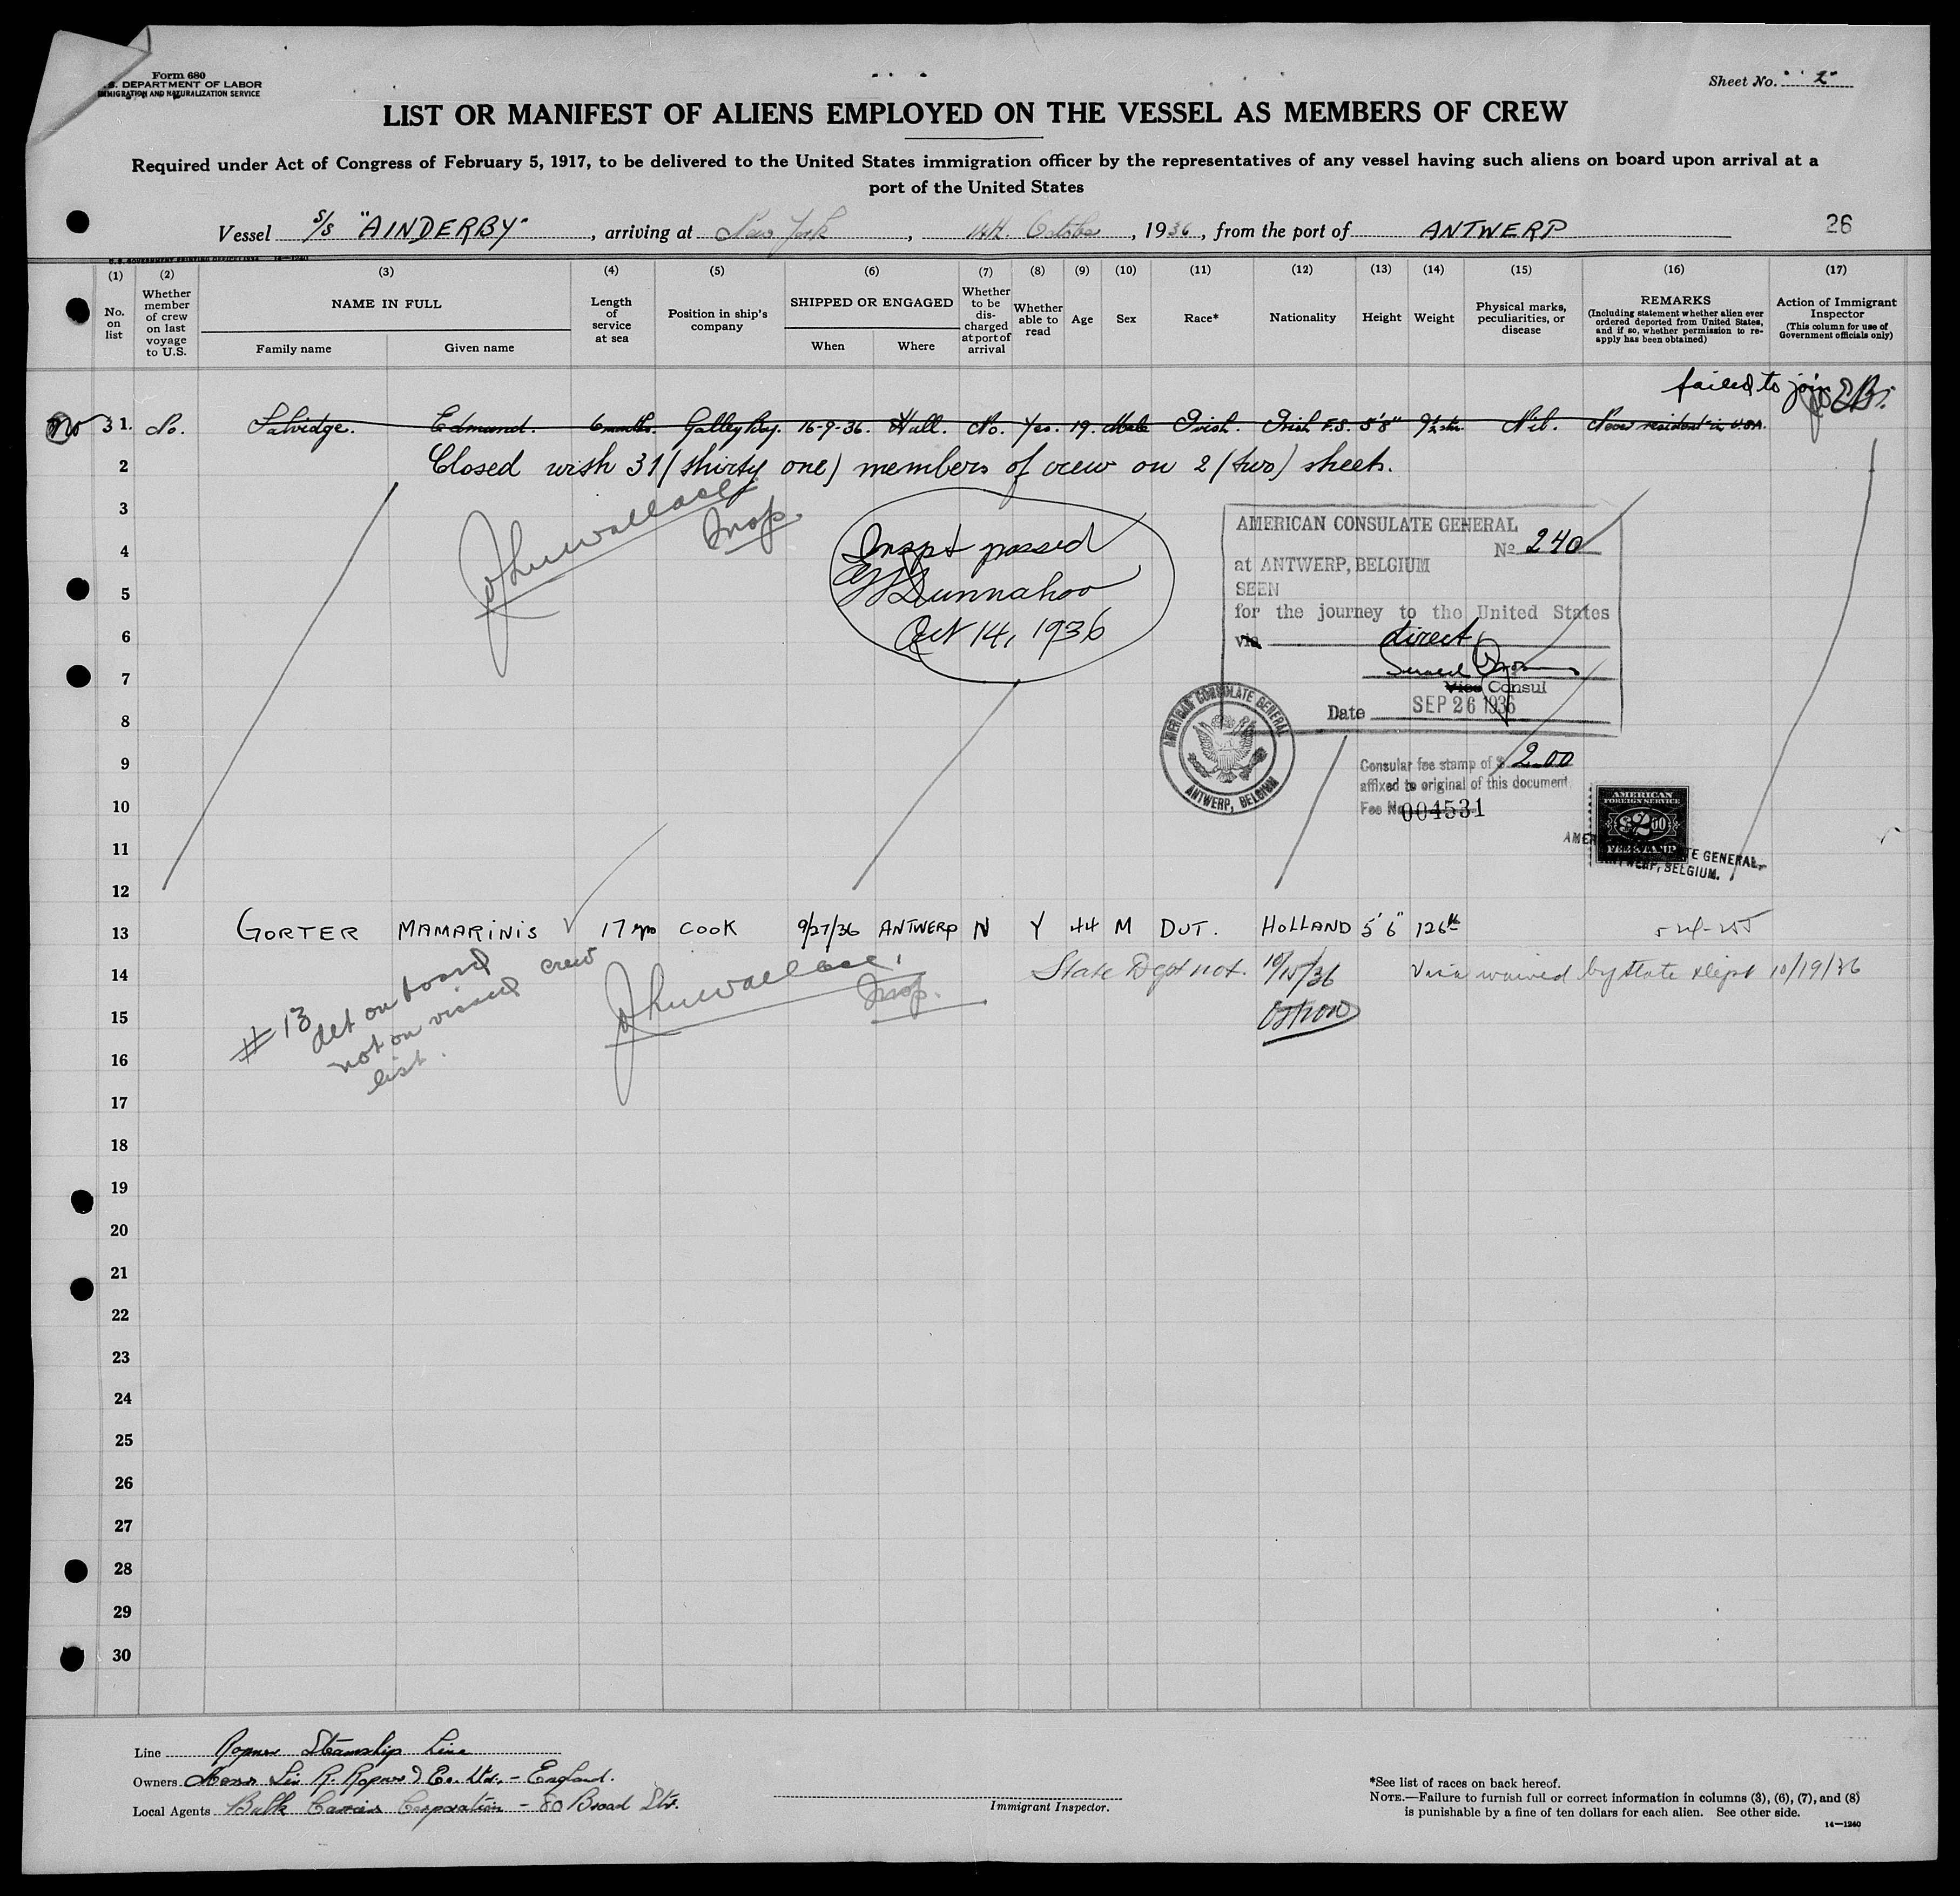 Form 680
U.S. DEPARTMENT OF LABOR
IMMIGRATION AND NATURALIZATION SERVICE
Sheet No. 2
LIST OR MANIFEST OF ALIENS EMPLOYED ON THE VESSEL AS MEMBERS OF CREW
Required under Act of Congress of February 5, 1917, to be delivered to the United States immigration officer by the representatives of any vessel having such aliens on board upon arrival at a
port of the United States
Vessel S/S "AINDERBY", arriving at New York, 14th. October, 1936, from the port of ANTWERP
26
(1) (2) (3) (4) (5) (6) (7) (8) (9) (10) (11) (12) (13) (14) (15) (16) (17)
No. on list
Whether member of crew on last voyage to U.S.
NAME IN FULL
Family name
Given name
Length of service at sea
Position in ship's company
SHIPPED OR ENGAGED
When
Where
Whether to be discharged at port of arrival
Whether able to read
Age
Sex
Race*
Nationality
Height
Weight
Physical marks, peculiarities, or disease
REMARKS
(Including statement whether alien ever ordered deported from United States, and if so, whether permission to reapply has been obtained)
Action of Immigrant Inspector
(This column for use of Government officials only)
failed to join
31. No. Salvidge. Edmund. 6 months. Galley Boy. 16-9-36. Hull. No. Yes. 19. Male Irish. Irish F.S. 5'8" 9½ st. Nil. Never resident in U.S.A.
2 Closed with 31 (thirty one) members of crew on 2 (two) sheets.
3
John Wallace
Insp.
4
5
6
7
8
9
10
11
12
Inspt passed
Dunnahoo
Oct 14, 1936
AMERICAN CONSULATE GENERAL
No 240
at ANTWERP, BELGIUM
SEEN
for the journey to the United States
via direct
Vice Consul
Date SEP 26 1936
AMERICAN CONSULATE GENERAL
ANTWERP, BELGIUM
Consular fee stamp of $ 2.00
affixed to original of this document
Fee No 004531
AMERICAN
FOREIGN SERVICE
$2.00
FEE STAMP
AMERICAN CONSULATE GENERAL,
ANTWERP, BELGIUM.
13 GORTER MAMARINIS 17 yrs COOK 9/27/36 ANTWERP N Y 44 M DUT. HOLLAND 5'6" 126 lb
14 State Dept not. 10/15/36 Visa waived by State Dept 10/19/36
#13 det on board
not on visaed crew
list.
John Wallace.
Insp.
15
16
17
18
19
20
21
22
23
24
25
26
27
28
29
30
Line Ropner Steamship Line
Owners Messrs Sir R. Ropner & Co. Ltd. - England.
Local Agents Bulk Carriers Corporation - 80 Broad Str.
Immigrant Inspector.
*See list of races on back hereof.
NOTE.—Failure to furnish full or correct information in columns (3), (6), (7), and (8)
is punishable by a fine of ten dollars for each alien. See other side.
14—1240